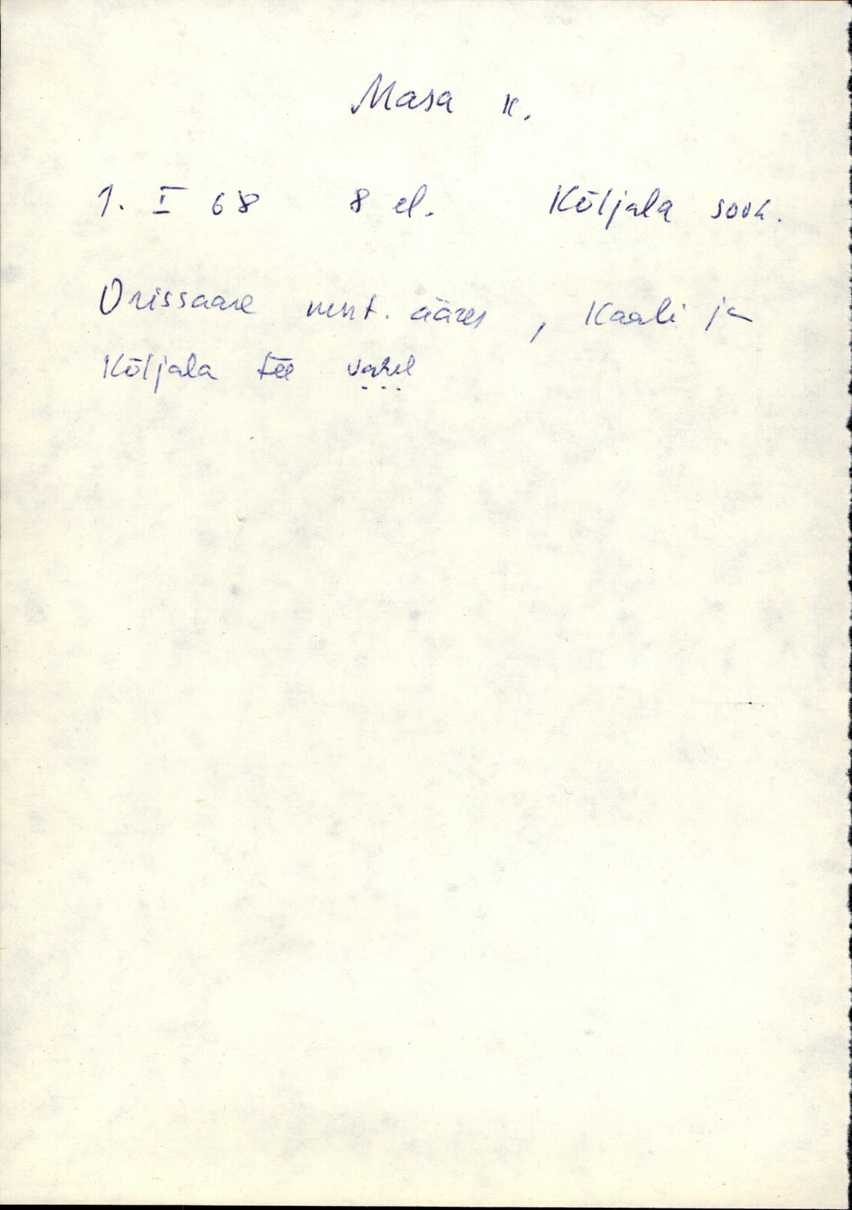 Masa k.
1. I 68 8 el. Kõljala sovh.
Orissaare mnt. ääres, Kaali ja
Kõljala tee vahel